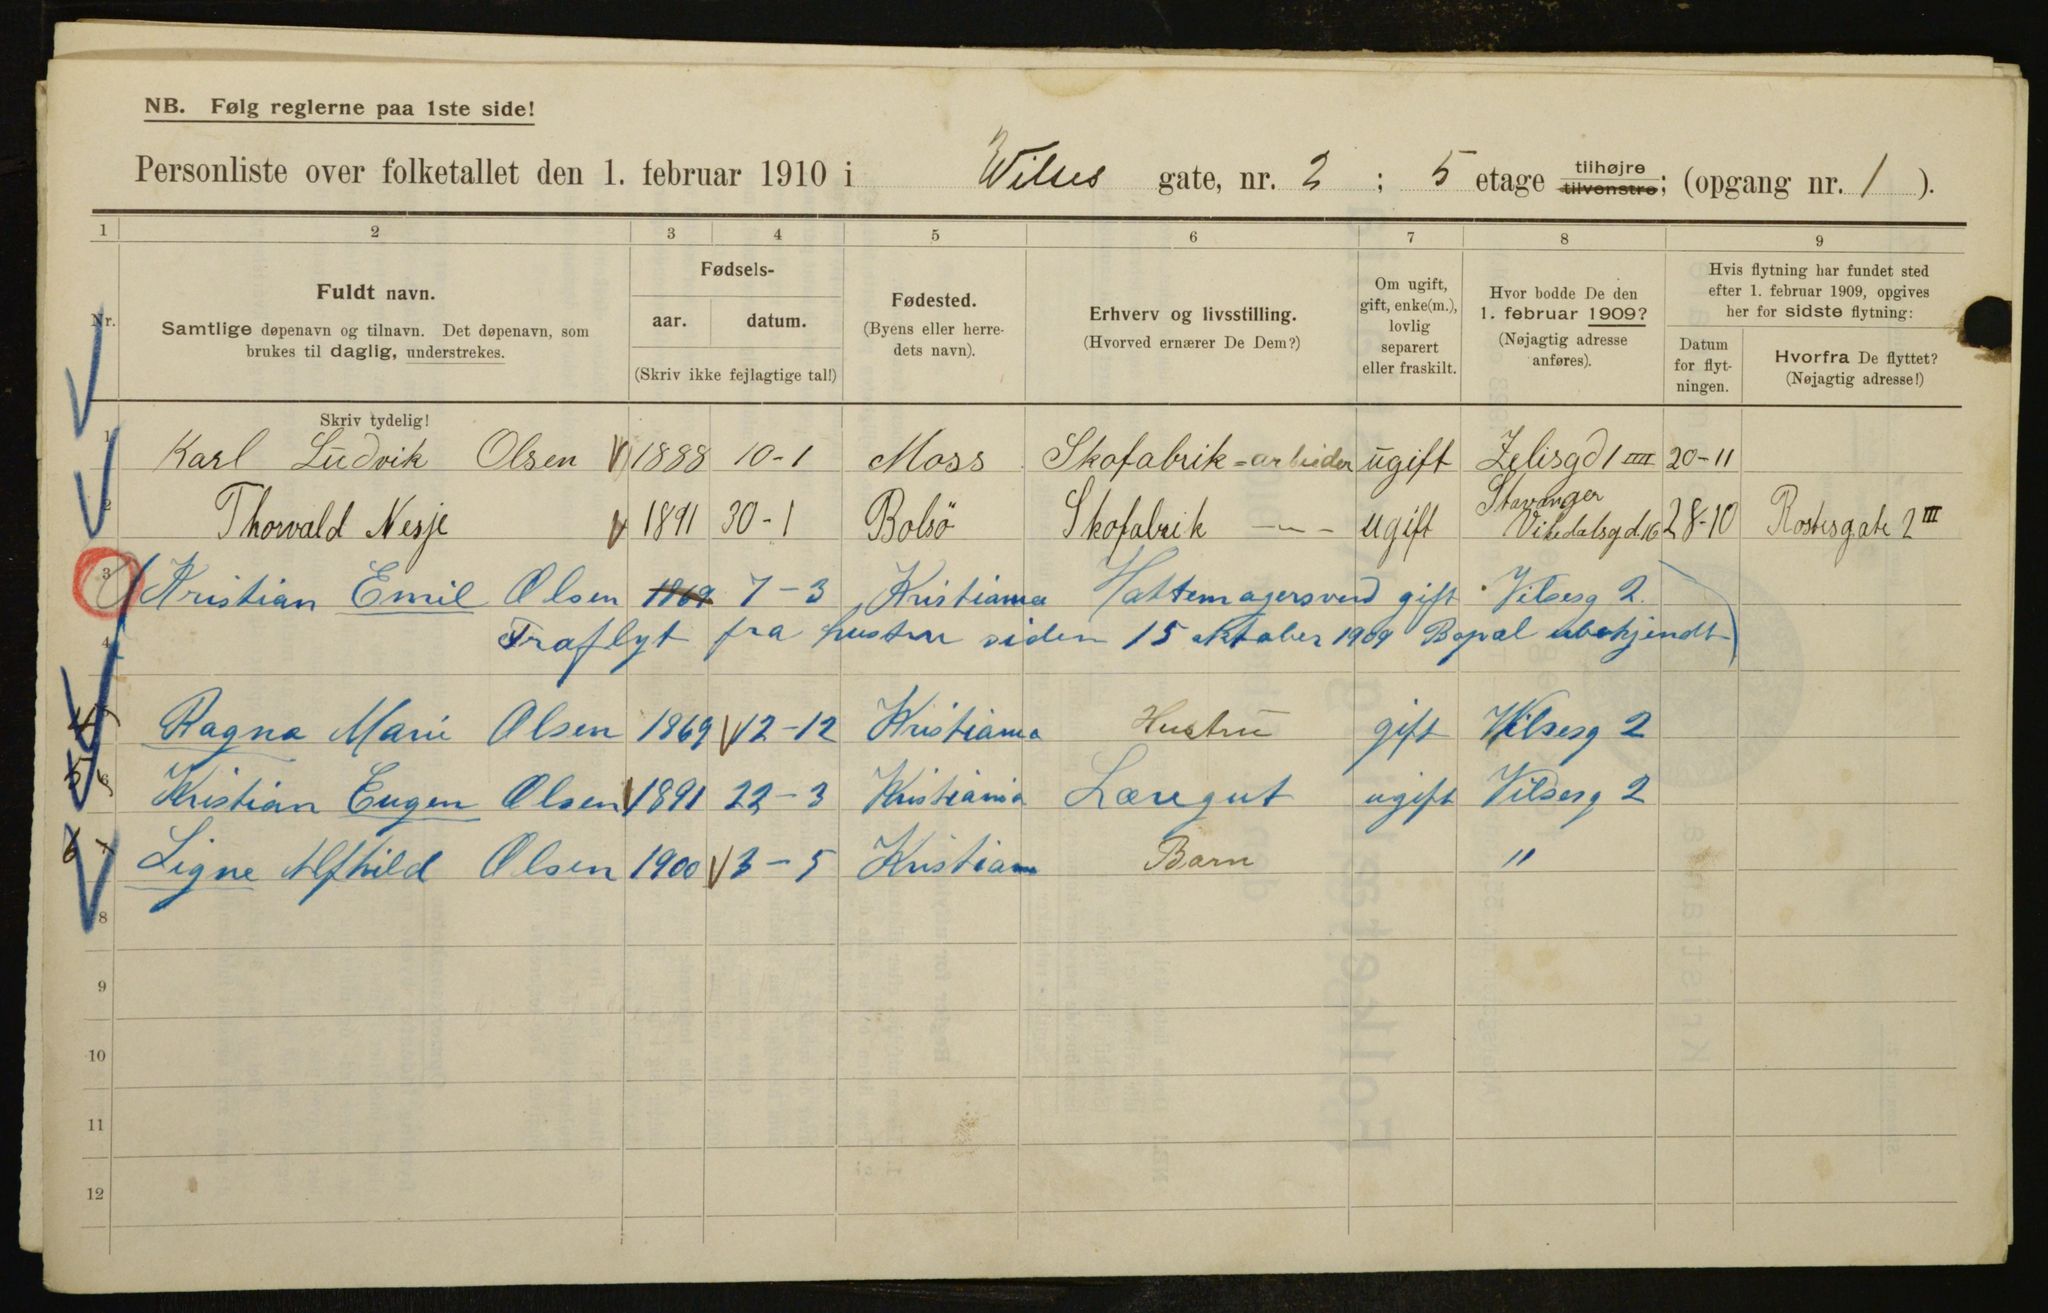 NB. Følg reglerne paa 1ste side!
Personliste over folketallet den 1. februar 1910 i Wilses gate, nr. 2 ; 5 etage tilhøjre tilvenstre; (opgang nr. 1 ).
1 2 3 4 5 6 7 8 9
Nr.
Fuldt navn.
Samtlige døpenavn og tilnavn. Det døpenavn, som
brukes til daglig, understrekes.
Fødsels-
aar. datum.
(Skriv ikke fejlagtige tal!)
Fødested.
(Byens eller herre-
dets navn).
Erhverv og livsstilling.
(Hvorved ernærer De Dem?)
Om ugift,
gift, enke(m.),
lovlig
separert
eller fraskilt.
Hvor bodde De den
1. februar 1909?
(Nøjagtig adresse
anføres).
Hvis flytning har fundet sted
efter 1. februar 1909, opgives
her for sidste flytning:
Datum
for flyt-
ningen.
Hvorfra De flyttet?
(Nøjagtig adresse!)
Skriv tydelig!
1 Karl Ludvik Olsen 1888 10-1 Moss Skofabrik-arbieder ugift Zelisgd 1 IIII 20-11
2 Thorvald Nesje 1891 30-1 Bolsö Skofabrik -"- ugift Stavanger Vikedalsgd. 16 28-10 Rostesgate 2 III
3 Kristian Emil Olsen 1869 7-3 Kristiania Hattemagersvend gift Vilsesg 2.
4 Fraflyt fra hustru siden 15 oktober 1909 Bopæl ubekjendt
Ragna Marie Olsen 1869 12-12 Kristiania Hustru gift Vilsesg 2
6 Kristian Eugen Olsen 1891 22-3 Kristiania Læregut ugift Vilsesg 2
Signe Alfhild Olsen 1900 3-5 Kristiania Barn "
8
9
10
11
12